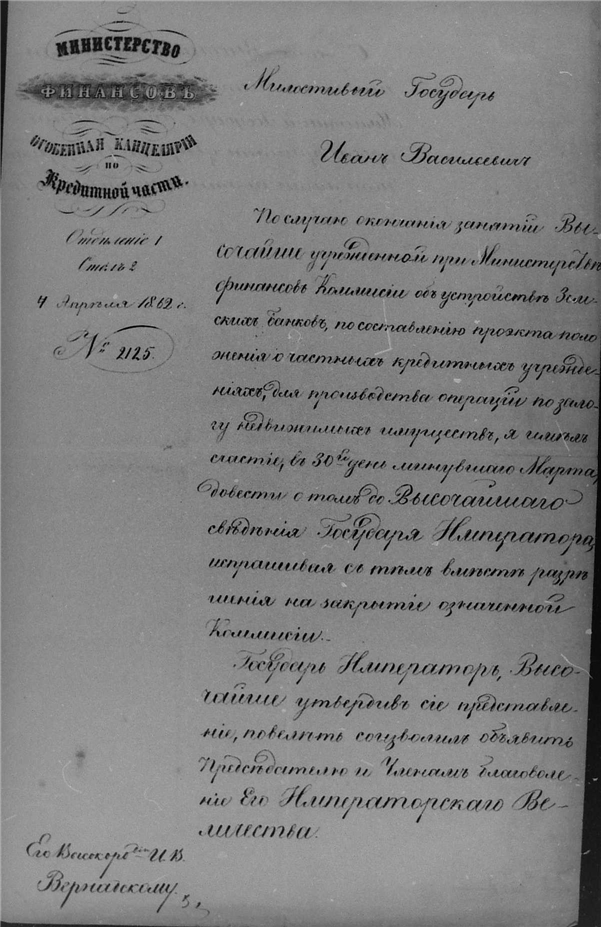 МИНИСТЕРСТВО
ФИНАНСОВЪ
ОСОБЕННАЯ КАНЦЕЛЯРІЯ
ПО
Кредитной части.
Отдѣленіе 1
Столъ 2
4 Апрѣля 1862 г.
№ 2125.
Милостивый Государь
Иванъ Васильевичъ
По случаю окончанія занятій Вы-
сочайше учрежденной при Министерствѣ
финансовъ Коммисіи объ устройствѣ Зем-
скихъ банковъ, по составленію проэкта поло
женія о частныхъ кредитныхъ учрежде-
ніяхъ, для производства операціи по зало-
гу недвижимыхъ имуществъ, я имѣлъ
счастіе, въ 30й день минувшаго Марта,
довести о томъ до Высочайшаго
свѣдѣнія Государя Императора,
испрашивая съ тѣмъ вмѣстѣ разрѣ
шенія на закрытіе означенной
Коммисіи.
Государь Императоръ, Высо-
чайше утвердивъ сіе представле-
ніе, повелѣть соизволилъ объявить
Предсѣдателю и Членамъ благоволе-
ніе Его Императорскаго Ве-
личества.
Его Высокород И. В.
Вернадскому